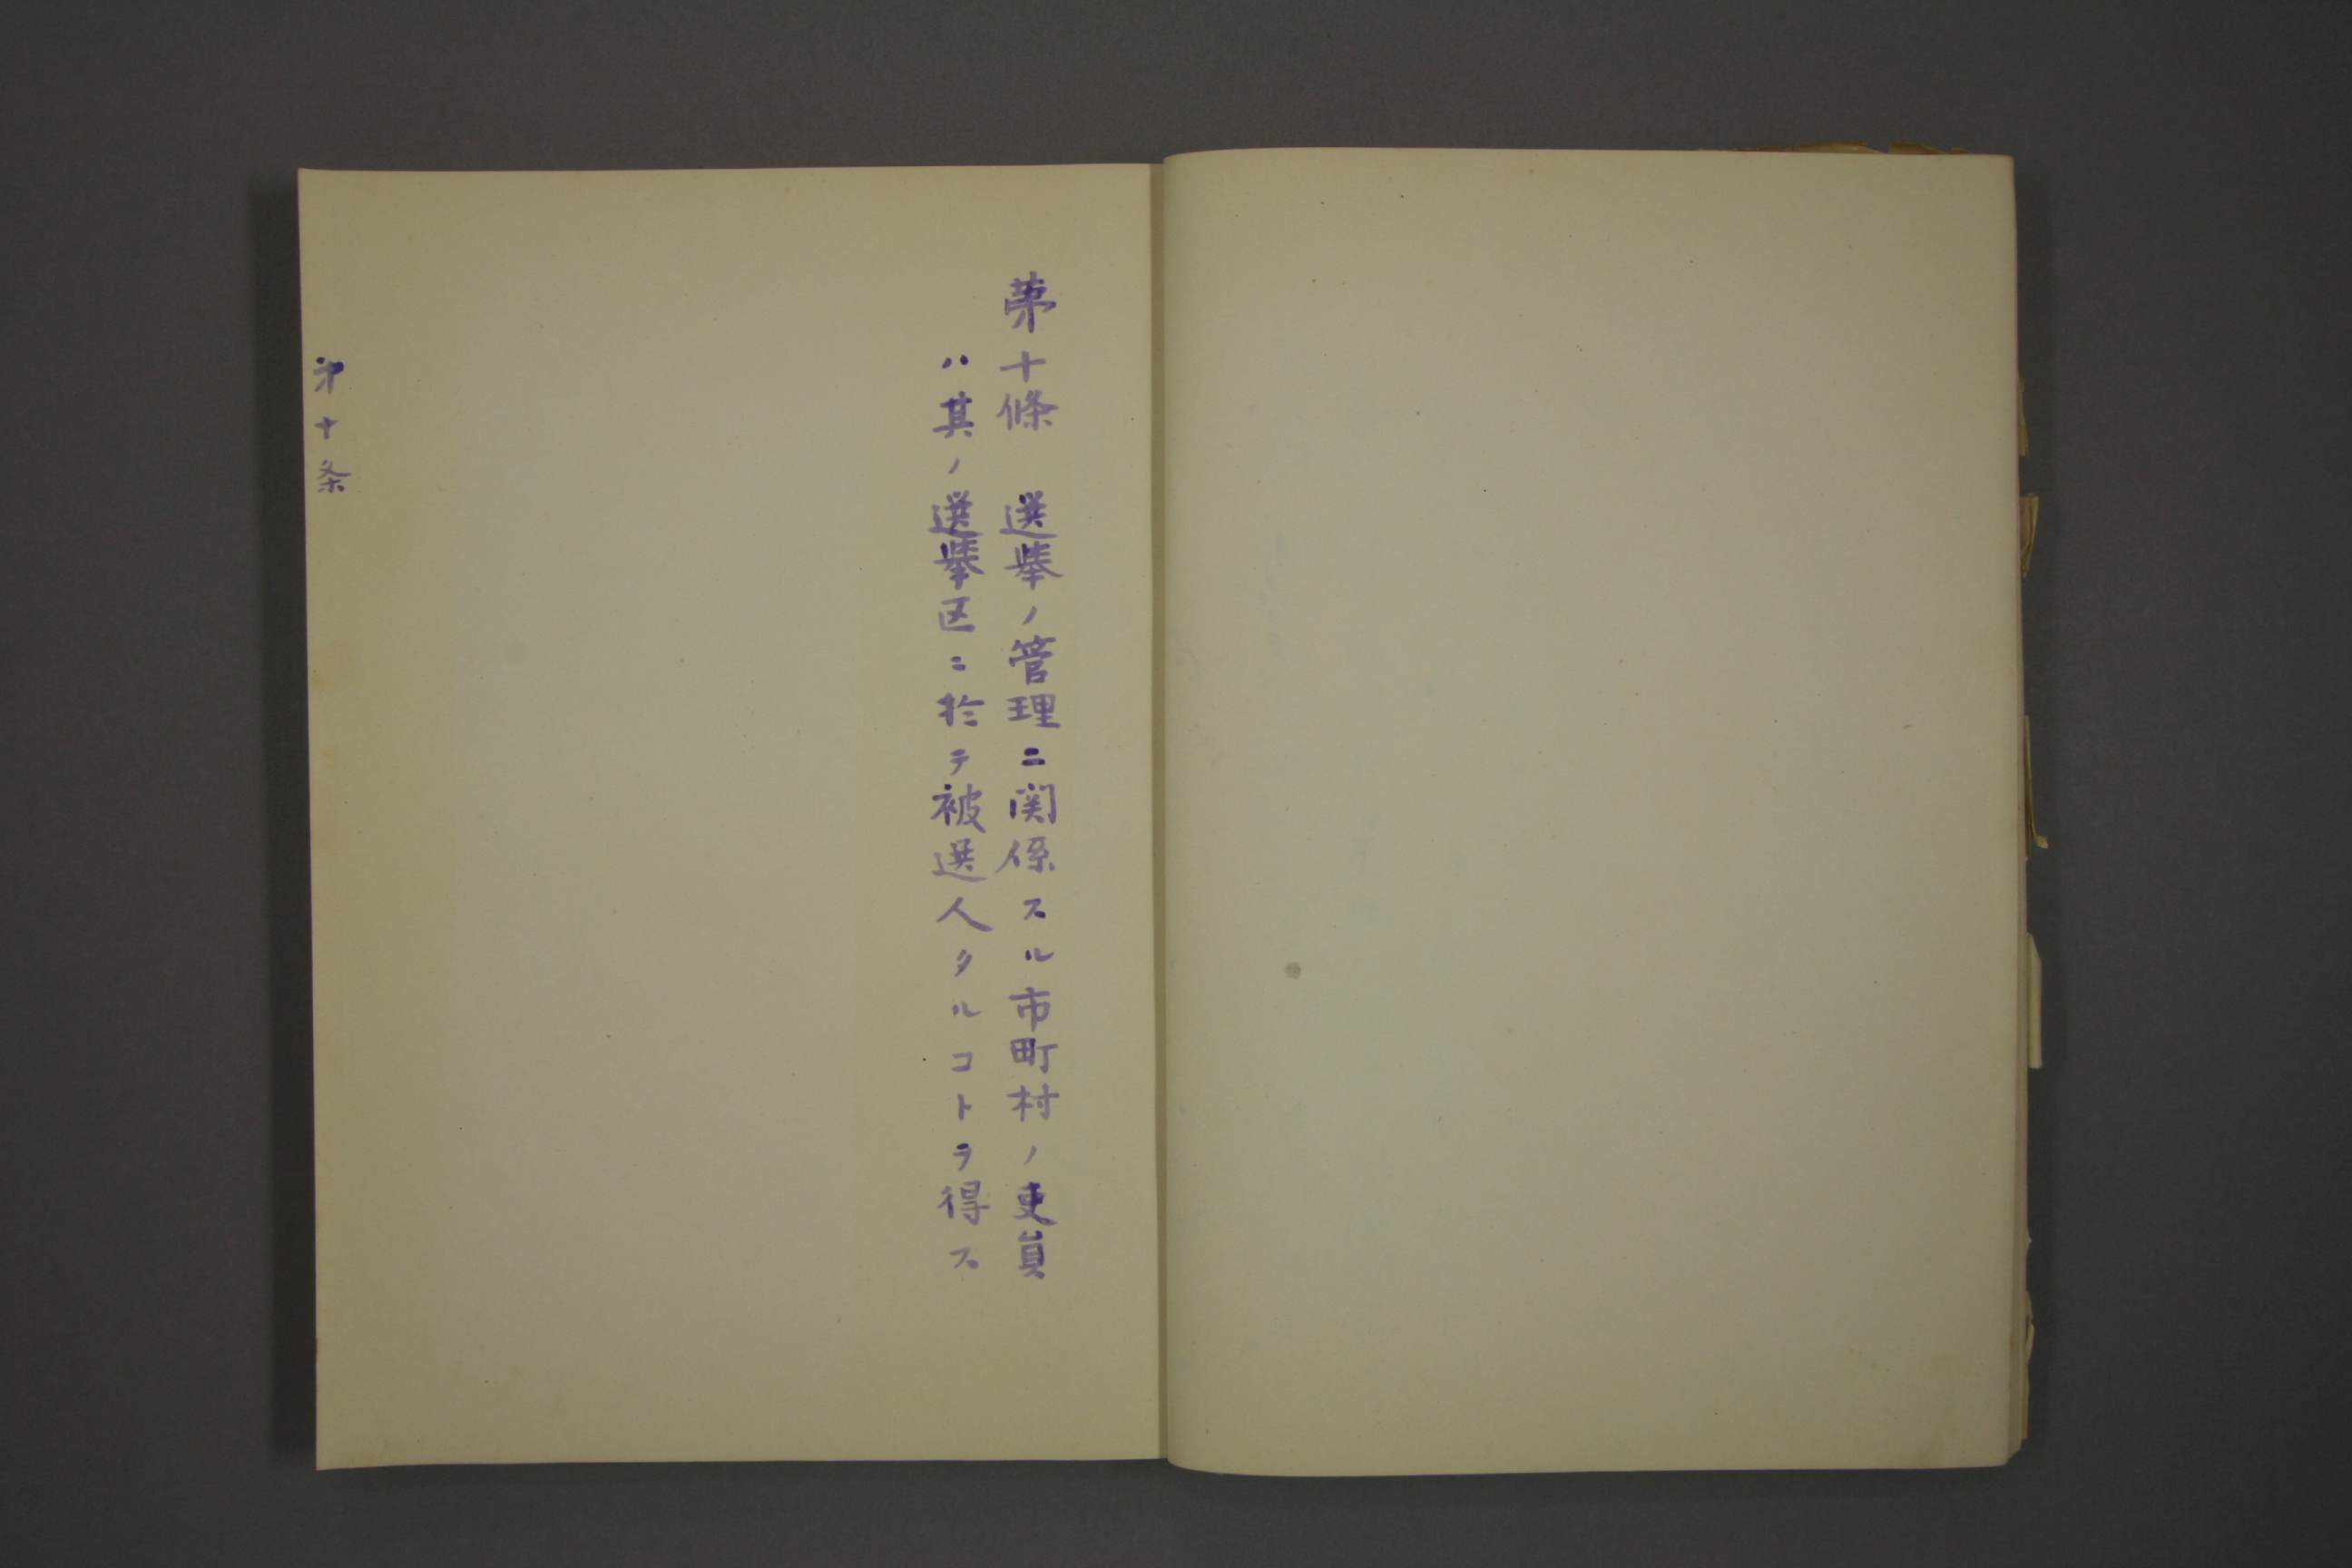 第十條　選挙ノ管理ニ関係スル市町村ノ吏員
ハ其ノ選挙区ニ於テ被選人タルコトヲ得ス
第十条